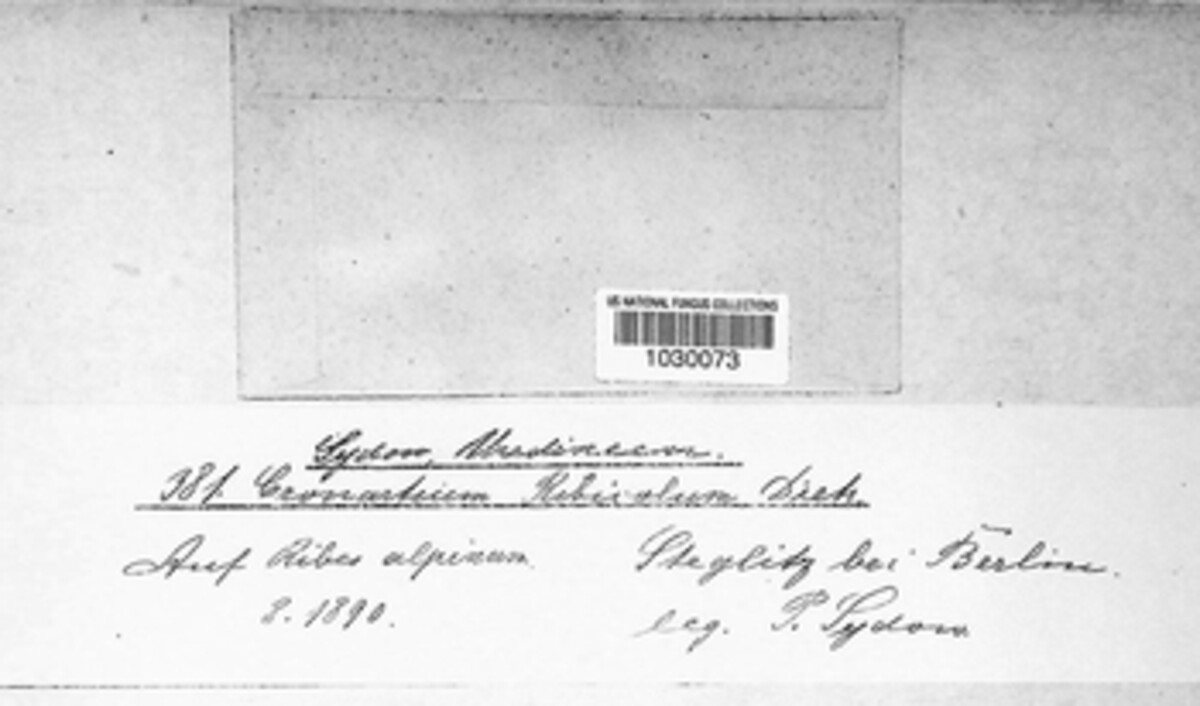 US NATIONAL FUNGUS COLLECTIONS
1030073
Sydow, Uredineen.
381. Cronartium Ribicolum Dietr.
Auf Ribes alpinum
8. 1890.
Steglitz bei Berlin.
leg. P. Sydow